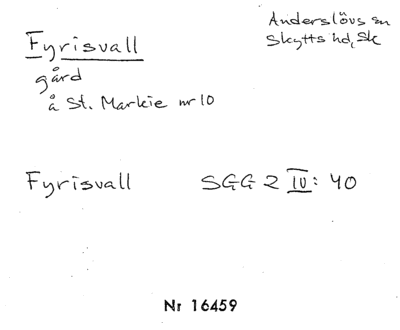 Fyrisvall
Anderslövs sn
Skytts hd, Sk
gård
å St. Markie nr 10
Fyrisvall SGG 2 IV: 40
Nr 16459